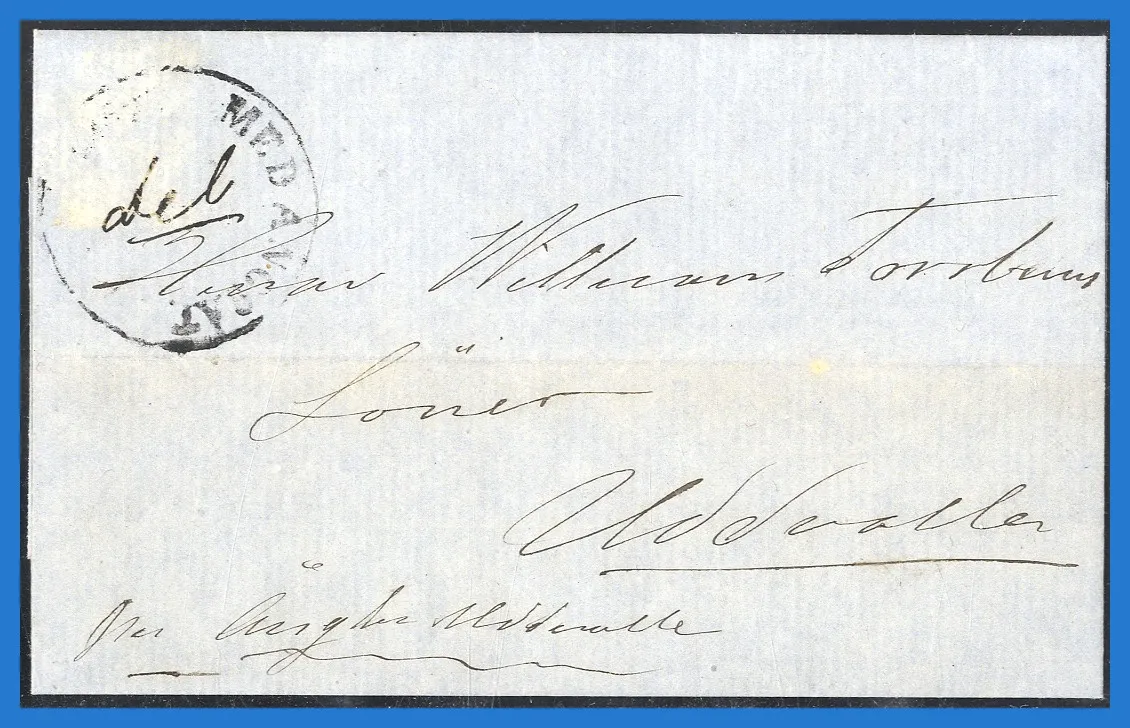 MED ÅNGBÅT
del
Herrar William Thorburns
Söner
Uddevalla
per Ångbn Uddevalla